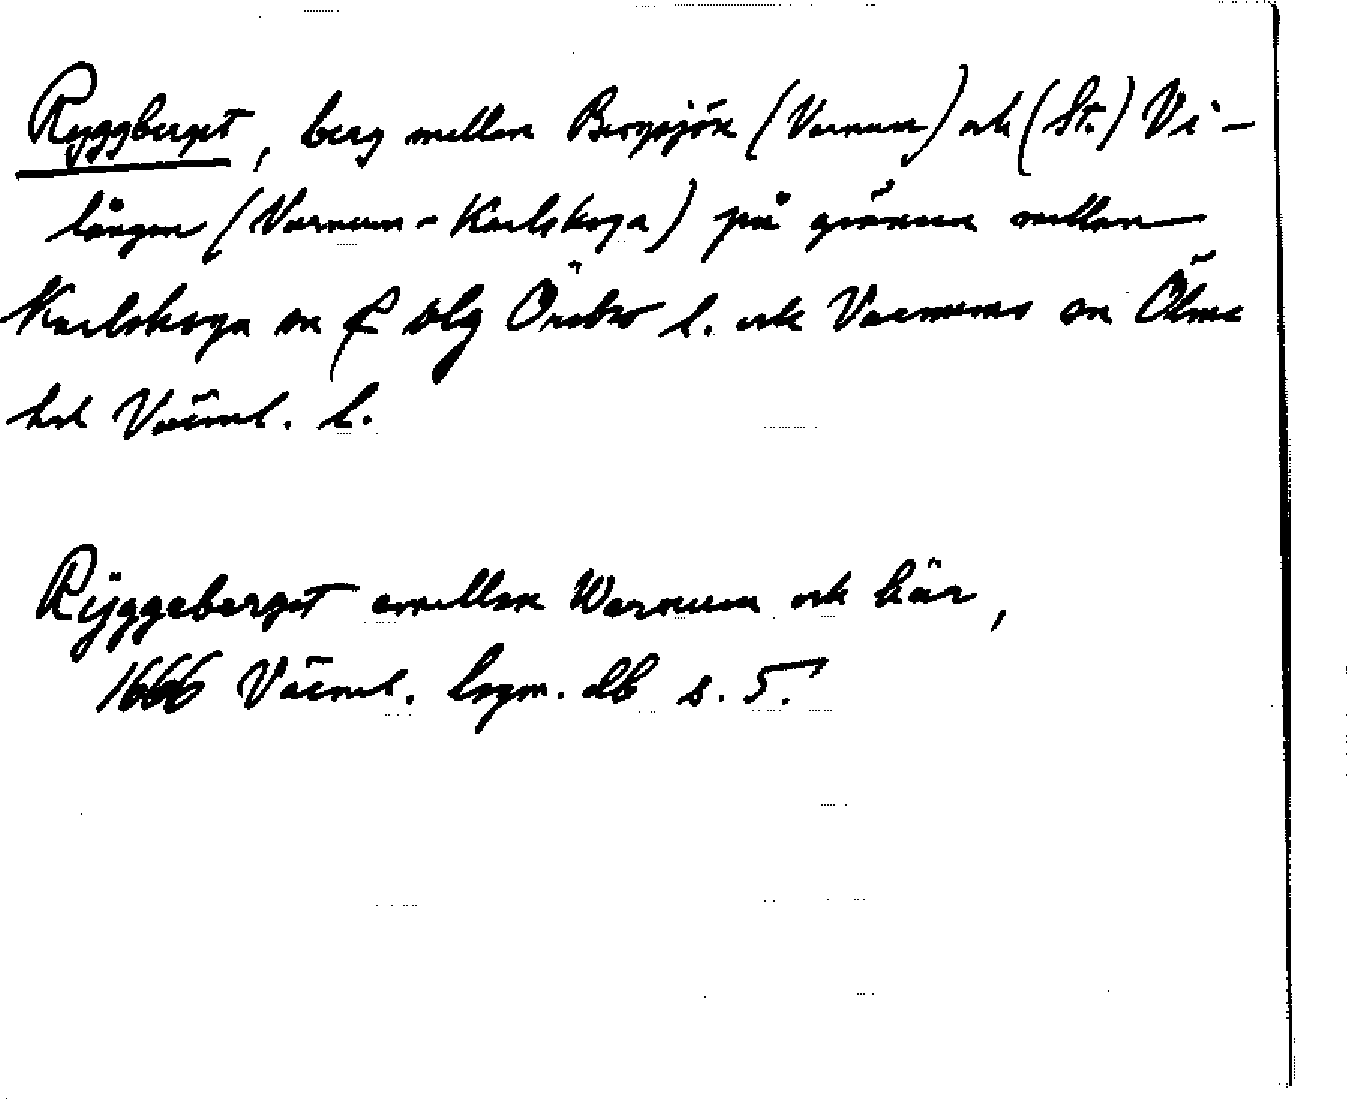 Ryggberget, berg mellan Bergsjön (Varnum) och (St.) Vi-
lången (Varnum - Karlskoga) på gränsen mellan
Karlskoga sn f blg Örebro l. och Varnums sn Ölme
hd Värml. l.
Rÿggeberget emellan Warnum och här,
1666 Värml. lsgm. db s. 5.